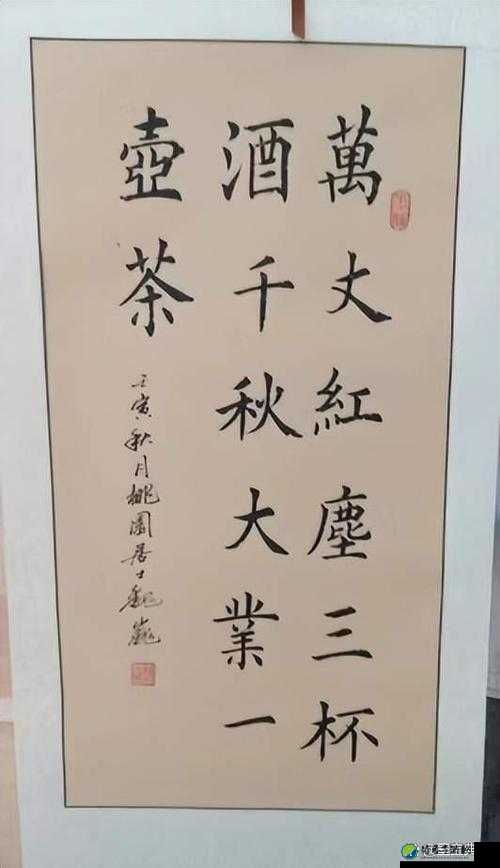 萬丈紅塵三杯
酒千秋大業一
壺茶
壬寅秋月桃園居士魏巍